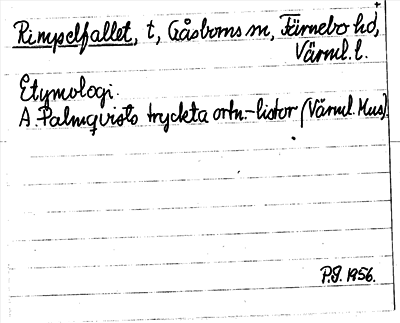 Rimpselfallet, t, Gåsborns sn, Färnebo hd,
Värml. l.
Etymologi.
A. Palmqvists tryckta ortn.-listor (Värml. Mus).
P.J. 1956.